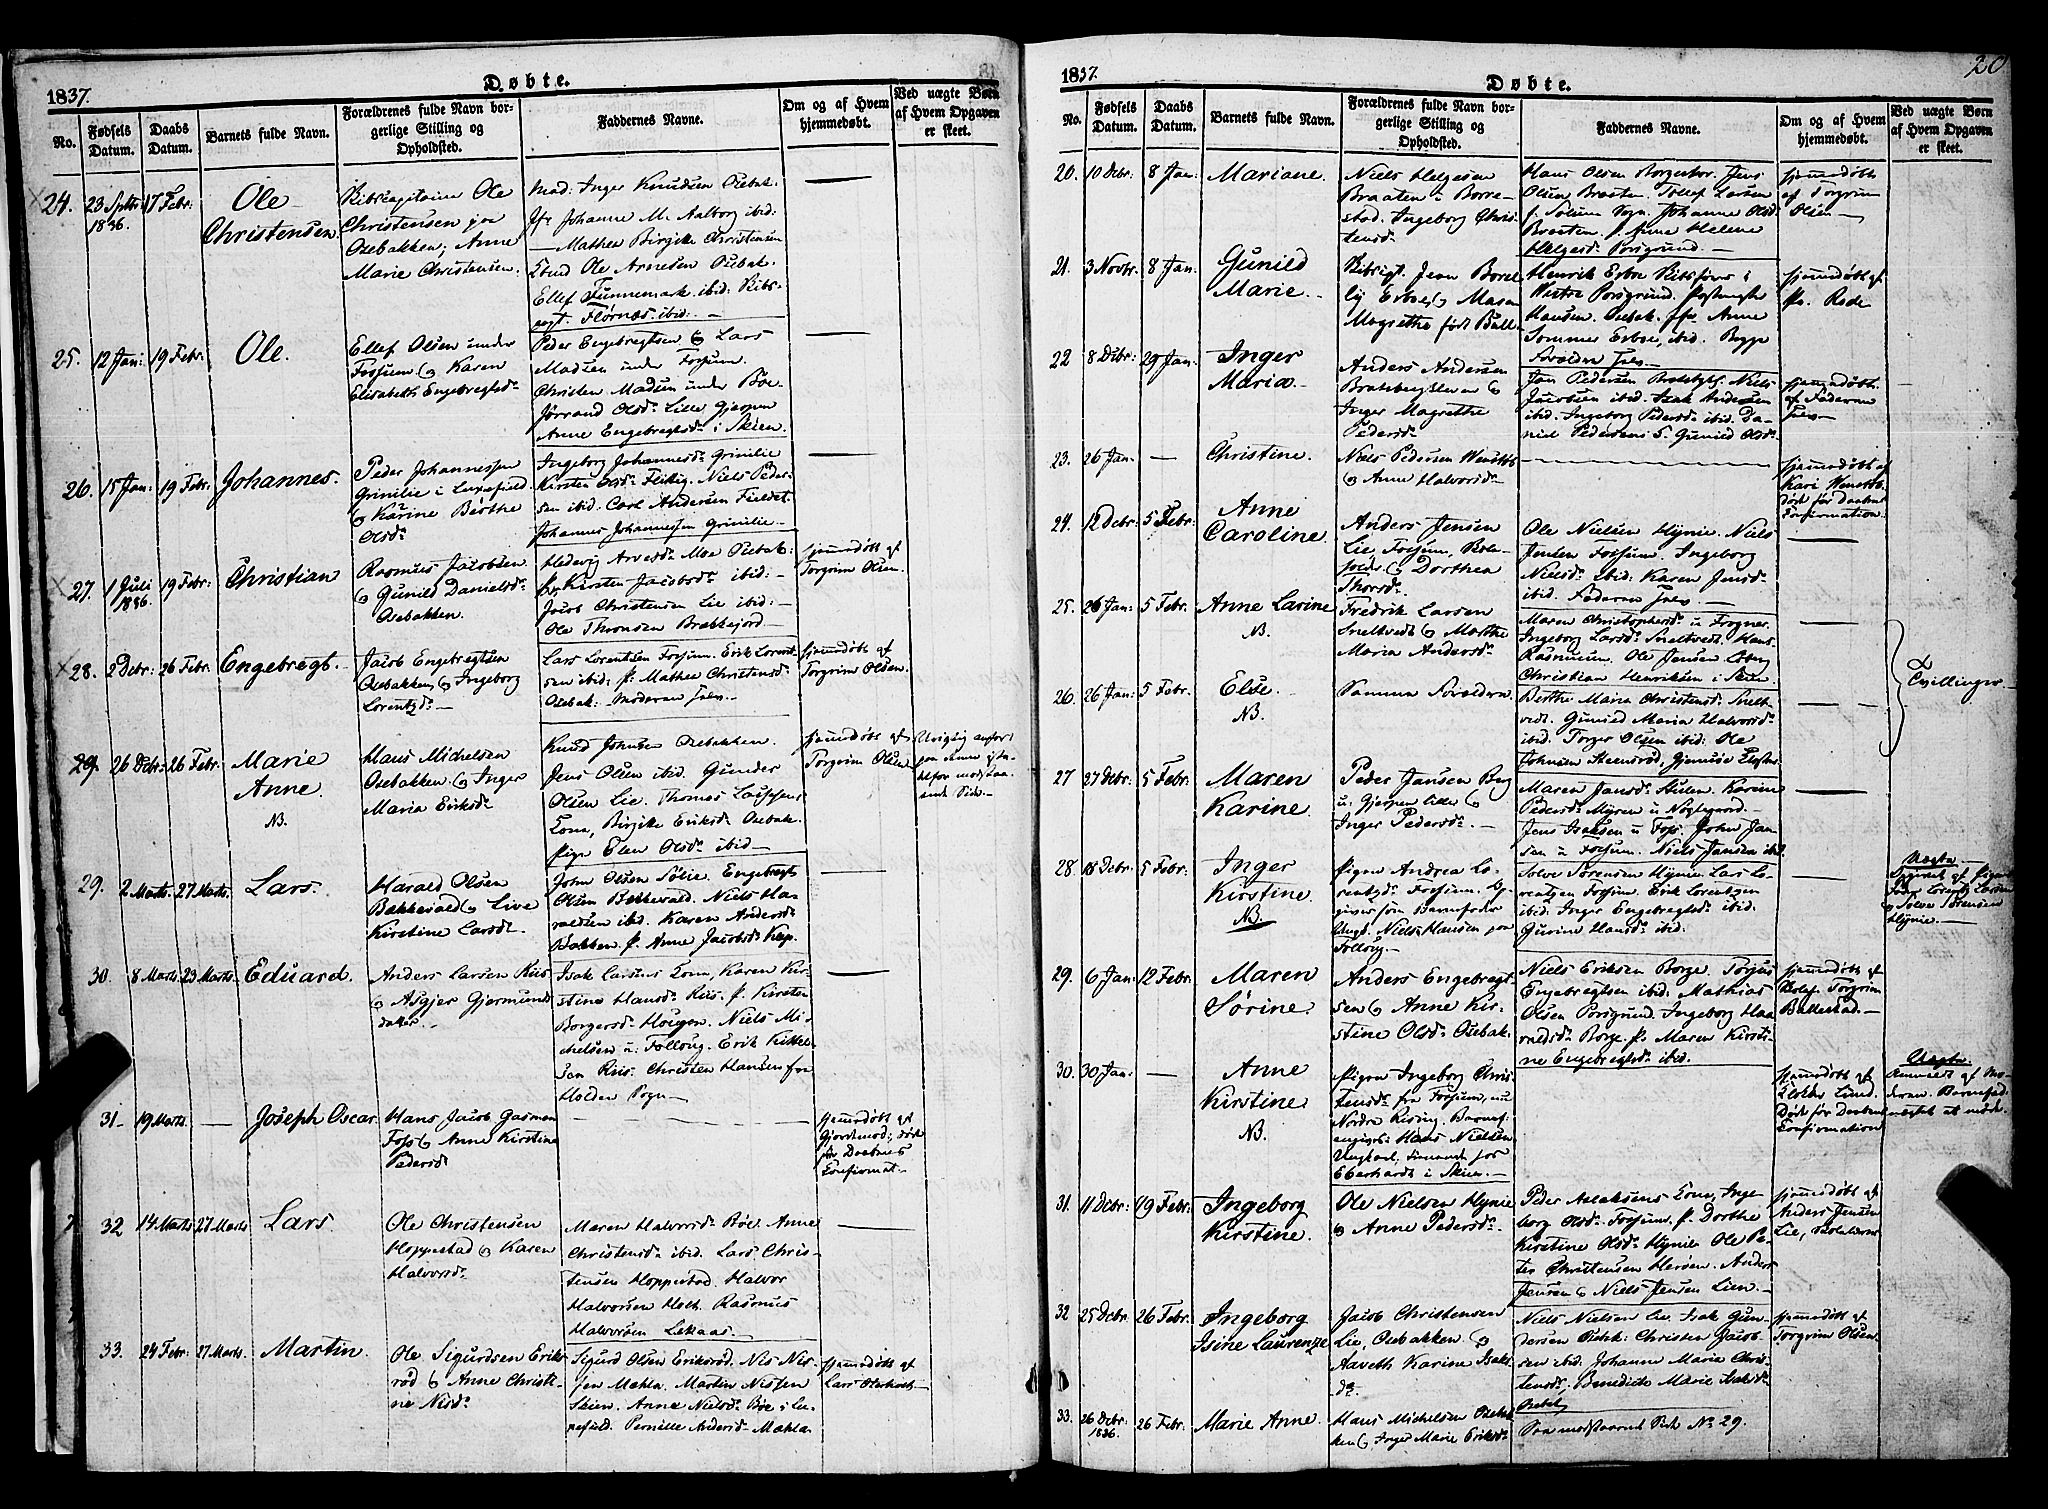 1837.
Døbte.
No.
Fødsels Datum.
Daabs Datum.
Barnets fulde Navn.
Forældrenes fulde Navn borgerlige Stilling og Opholdsted.
Faddernes Navne.
Om og af Hvem hjemmedøbt.
Ved uægte Børn af Hvem Opgaven er skeet.
24. 23 Septbr: 1836. 17 Febr:
Ole
Christensen
Skibscapitaine Ole
Christensen
Osebakken; Anne
Marie Christensen.
Mad: Inger Knudsen Osebak.
Jfr Johanne M. Aalborg ibid:
Mathea Birgitte Christensen
Ole Arnesen Osebak.
Ellef Funnemark ibid: Skibs-
Flørnæs ibid:
25. 12 Jan: 19 Febr:
Ole.
Ellef Olsen under
Fossum og Karen
Elisabeth Engebregtsd.
Peder Engebregtsen og Lars
Madsen under Fossum.
Christen Madsen under Bøe
Jørrand Olsd. Lille Gjerpen
Anne Engebregtsd. i Skien.
26. 15 Jan: 19 Febr:
Johannes.
Peder Johannessen
Grinilie i Luxefield
og Karine Birthe
Olsd.
Ingeborg Johannesd. Grinilie
Kirsten Olsd. Niels Peder-
sen ibid: Carl Andersen Fieldet
Johannes Johannessen Grinilie
27. 1 Juli 1836. 19 Febr:
Christian
Rasmus Jacobsen
og Gunild Danielsd.
Osebakken.
Hedevig Arvesd. Moe Osebak:
P. Kirsten Jacobsd. ibid:
Jacob Christensen Lie ibid:
Ole Thronsen Brækkejord
hjemmedøbt af
Torgrim Olsen.
28. 2 Debr: 26 Febr:
Engebregt.
Jacob Engebregtsen
Osebakken og Ingeborg
Lorentzd.
Lars Lorentsen Fossum. Erik Lorent-
sen ibid: P. Mathea Christensd.
Osebak: Moderen selv.
hjemmedøbt af
Torgrim Olsen.
29. 26 Debr: 26 Febr:
Marie
Anne
NB.
Hans Michelsen
Osebakken og Inger
Maria Eriksd.
Knud Johnsen Osebakken.
Jens Olsen ibid. Gunder
Olsen Lie. Thomas
Birgitte Eriksd. Osebak.
Pige Elen Olsd. ibid
hjemmedøbt af
Torgrim Olsen
29. 2 Marts. 27 Marts.
Lars.
Harald Olsen
Bakkevold og Live
Kirstine Larsd.
John Olsen Sølie. Engebregt
Olsen Bakkevold. Niels Ha-
raldsen ibid. Karen Andersd.
Bakken. P. Anne Jacobsd.
30. 8 Marts. 23 Marts.
Eduard.
Anders Larsen Riis
og Asgjer Gjermunds
datter.
Isak Larsens Kone, Karen Kir-
stine Hansd. Riis. P. Kirsten
Borgersd. Hougen. Niels Mi-
chelsen u: Follaug. Erik Kittel-
sen Riis. Christen Hansen fra
Holden Sogn
31 19 Marts.
Joseph Oscar.
Hans Jacob Gasman
Foss og Anne Kirstine
Pedersd.
hjemmedøbt af
død
før Daabens
Confirmat.
32 14 Marts 27 Marts.
Lars
Ole Christensen
Hoppestad og Karen
Halvorsd.
Maren Halvorsd. Bøe. Anne
Christensd. ibid. Lars Chris-
tensen Hoppestad. Halvor
Halvorsen Rasmus
Halvorsen
33. 24 Febr: 27 Marts.
Martin.
Ole Sigurdsen Eriks-
rød og Anne Christi-
ne Nisd.
Sigurd Olsen Eriksrød. Nis Nis-
sen Mæhla. Martin Nissen
Skien. Anne Nielsd. Bøe i Lu-
xefield. Pernille Andersd. Mæhla
hjemmedøbt af
Lars
1837.
Døbte.
20
No.
Fødsels Datum.
Daabs Datum.
Barnets fulde Navn.
Forældrenes fulde Navn borgerlige Stilling og Opholdsted.
Faddernes Navne.
Om og af Hvem hjemmedøbt.
Ved uægte Børn af Hvem Opgaven er skeet.
20. 10 Debr: 8 Jan:
Mariane.
Niels Helgesen
Braaten u Borre-
stad. Ingeborg Chris-
tensd.
Hans Olsen Jens
Olsen Braaten. Tollef Larsen
Solum Sogn. Johanne Olsd.
Braaten. P. Anne Helene
Helgesd. Porsgrund.
hjemmedøbt
af Torgrim
Olsen
21. 3 Novbr. 8 Jan:
Gunild
Marie
Jean
Margrethe født Bull
Henrik
Westre Porsgrund. Postmester
Hansen. Osebak. Jfr Anne
Sommer ibid. Begge
Forældre selv.
hjemmedøbt af
22 8 Debr: 29 Jan:
Inger
Maria
Anders Andersen
Bratsbergkleven og
Inger Magrethe
Pedersd.
Jan Pedersen Bratsbgkl. Niels
Jacobsen ibid. Isak Andersen
ibid. Ingeborg Pedersd. ibid. Da-
niel Pedersens Gunild Olsd.
hjemmedøbt
af Faderen
selv
23. 26 Jan:
Christine.
Niels Pedersen Wenstøb
og Anne Halvorsd.
hjemmedøbt af
Kari Wenstøb.
død før Daabens
Confirmation.
24. 12 Debr: 5 Febr:
Anne
Caroline.
Anders Jensen
Lie, Fossum,
og Dorthea
Thorsd.
Ole Nielsen Hynie. Niels
Jensen Fossum. Ingeborg
Nielsd. ibid: Karen Jensd.
ibid. Faderen selv.
25. 26 Jan: 5 Febr.
Anne Larine
NB.
Fredrik Larsen
Sneltvedt og Marthe
Maria Andersd.
Maren Christophersd. u Frogner.
Ingeborg Larsd. Sneltvedt. Hans
Rasmusen. Ole Jensen
Christian Henriksen i Skien.
Tvillinger
26. 26 Jan: 5 Febr.
Else.
NB.
Samme Forældre.
Berthe Maria Christensd. Snelt-
vedt. Gunild Maria Halvorsd.
ibid. Torger Olsen ibid: Ole
Johnsen
27 27 Debr: 5 Febr:
Maren
Karine.
Peder Jansen Berg
u: Gjerpen lille og
Inger Pedersd.
Maren Jansd. Skilen. Karine
Pedersd. Myren u
Jens Isaksen u Foss. John Jan-
sen u Fossum. Niels Jansen ibid.
28. 18 Debr: 5 Febr:
Inger
Kirstine.
NB.
Pigen Andrea Lo-
rentzd. Fossum. Op-
giver som Barnefader
Ungk. Niels Hansen paa
Follaug.
Solve Sørensen Hynie. Lars Lo-
rentzen Fossum. Erik Lorentzen
ibid: Inger Engebregtsd. ibid.
Gurine Hansd. ibid.
Uægte
Opgivet af Pigens
Lorentz Larsen
og Solve Sørensen
Hynie.
29. 6 Jan: 12 Febr.
Maren
Sørine.
Anders Engebregt-
sen og Anne Kir-
stine Olsd. Osebak.
Niels Eriksen Borge. Torjus
Engebregtsen ibid: Mathias
Olsen Porsgrund. Ingeborg Haa-
valdsd. Borge. P. Maren Kirsti-
ne Engebregtsd. ibid.
hjemmedøbt af
Torgrim
Ballestad.
30. 30 Jan:
Anne
Kirstine
NB.
Pigen Ingeborg Chris-
tensd. fra Fossum, nu
Nordre Rising. Barnef.
angives Hans Nielsen
Ungkarl, tjenende hos
Eberhardt i Skien.
hjemmedøbt af
Lund.
Død før Daabens
Confirmation
Uægte.
Anmeldt af Mo-
deren. Barnefad.
nægtet at møde.
31. 11 Debr: 19 Febr.
Ingeborg
Kirstine.
Ole Nielsen Hynie
og Anne Pedersd.
Peder Aslaksens Kone, Inge-
borg Olsd. Fossum. P. Dorthe
Kirstine Olsd. Hynie Ole Pe-
ter Christensen Anders
Jensen og Niels Jensen Lien.
hjemmedøbt af
Anders Jensen
Lie,
32 25 Debr: 26 Febr.
Ingeborg
Isine Laurenze
Jacob Christensen
Lie, Osebakken og
Aaveth Karine Isaks-
dr.
Niels Nielsen Lie. Isak Gun-
dersen Osebk: Christen Jacob-
sen ibid. Johanne Marie Chris-
tensd. Benedicte Marie Isaksd.
Osebak
hjemmedøbt af
Torgrim Olsen.
33. 26 Debr: 1836. 26 Febr.
Marie Anne.
Hans Michelsen Osebak-
ken og Inger Marie Eriksd.
Paa modstaaende Side No 29.